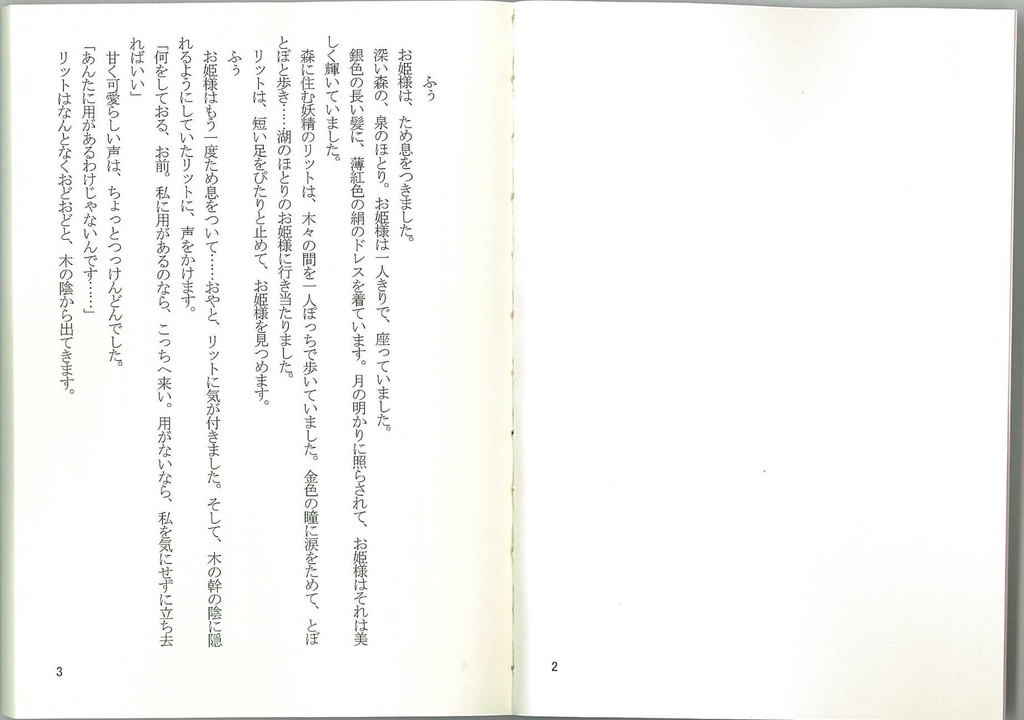 ふぅ
お姫様は、ため息をつきました。
深い森の、泉のほとり。お姫様は一人きりで、座っていました。
銀色の長い髪に、薄紅色の絹のドレスを着ています。月の明かりに照らされて、お姫様はそれは美
しく輝いていました。
森に住む妖精のリットは、木々の間を一人ぼっちで歩いていました。金色の瞳に涙をためて、とぼ
とぼと歩き……湖のほとりのお姫様に行き当たりました。
リットは、短い足をぴたりと止めて、お姫様を見つめます。
ふぅ
お姫様はもう一度ため息をついて……おやと、リットに気が付きました。そして、木の幹の陰に隠
れるようにしていたリットに、声をかけます。
「何をしておる、お前。私に用があるのなら、こっちへ来い。用がないなら、私を気にせずに立ち去
ればいい」
甘く可愛らしい声は、ちょっとつっけんどんでした。
「あんたに用があるわけじゃないんです……」
リットはなんとなくおどおどと、木の陰から出てきます。
3
2